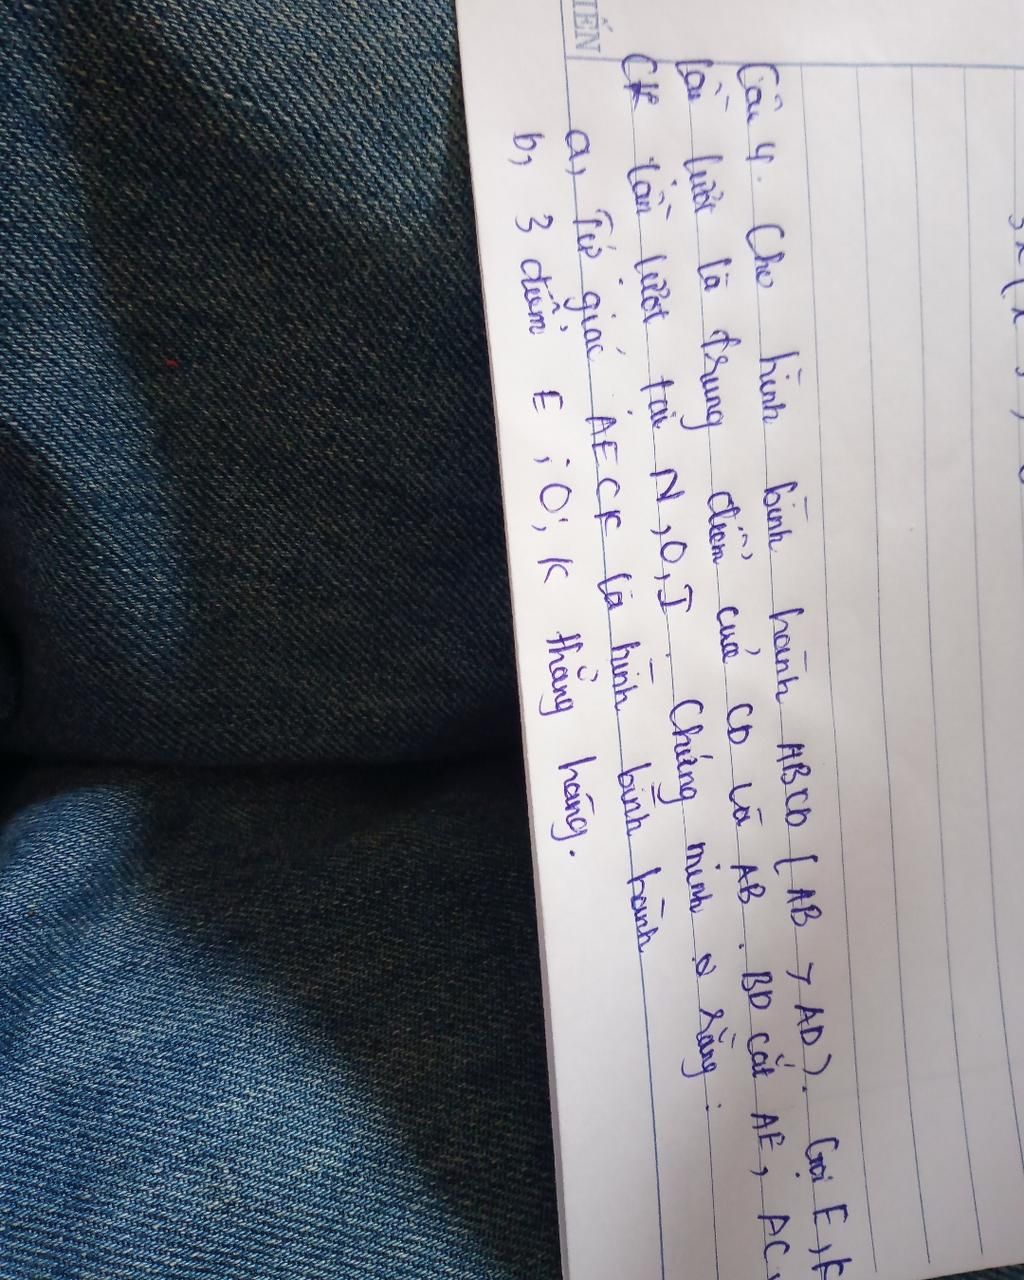 Câu 4. Cho hình bình hành ABCD ( AB > AD). Gọi E, K
lần lượt là trung điểm của CD và AB. BD cắt AE, AC,
CK lần lượt tại N, O, I. Chứng minh rằng:
a, Tứ giác AECK là hình bình hành
b, 3 điểm E; O; K thẳng hàng.
IẾN